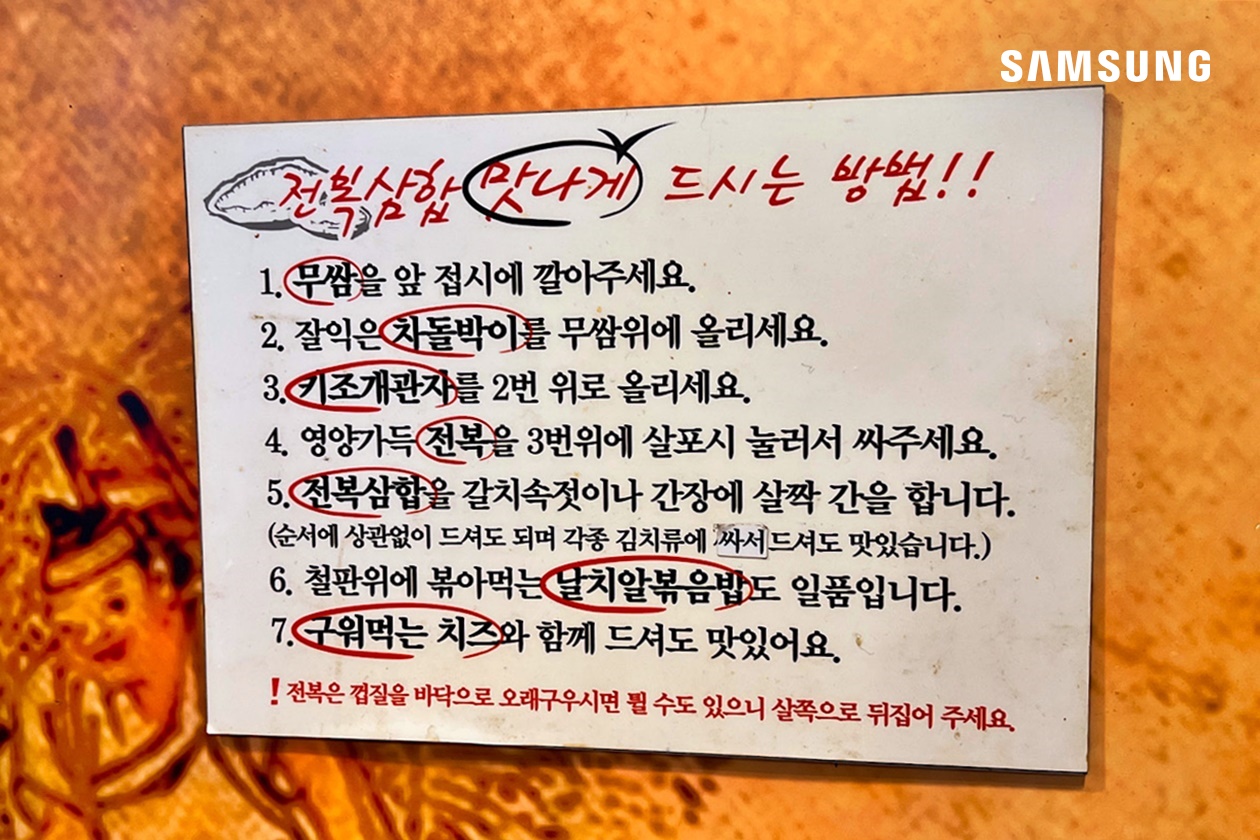 SAMSUNG
전복삼합 맛나게 드시는 방법!!
1. 무쌈을 앞 접시에 깔아주세요.
2. 잘익은 차돌박이를 무쌈위에 올리세요.
3. 키조개관자를 2번 위로 올리세요.
4. 영양가득 전복을 3번위에 살포시 눌러서 싸주세요.
5. 전복삼합을 갈치속젓이나 간장에 살짝 간을 합니다.
(순서에 상관없이 드셔도 되며 각종 김치류에 싸서드셔도 맛있습니다.)
6. 철판위에 볶아먹는 날치알볶음밥도 일품입니다.
7. 구워먹는 치즈와 함께 드셔도 맛있어요.
! 전복은 껍질을 바닥으로 오래구우시면 튈 수도 있으니 살쪽으로 뒤집어 주세요.